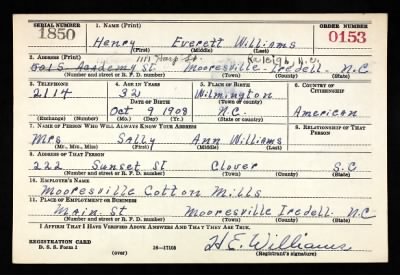 SERIAL NUMBER 1. NAME (Print) ORDER NUMBER
1850 Henry Everett Williams 0153
(First) (Middle) (Last)
2. ADDRESS (Print) 1117 Harp St. Raleigh, N.C.
501 S. Academy St. Mooresville Iredell N.C
(Number and street or R. F. D. number) (Town) (County) (State)
3. TELEPHONE 4. AGE IN YEARS 5. PLACE OF BIRTH 6. COUNTRY OF CITIZENSHIP
2114 32 Wilmington
DATE OF BIRTH (Town or county)
Oct 9 1908 N.C. American
(Exchange) (Number) (Mo.) (Day) (Yr.) (State or country)
7. NAME OF PERSON WHO WILL ALWAYS KNOW YOUR ADDRESS 8. RELATIONSHIP OF THAT PERSON
Mrs Sally Ann Williams
(Mr., Mrs., Miss) (First) (Middle) (Last)
9. ADDRESS OF THAT PERSON
222 Sunset St Clover S.C
(Number and street or R. F. D. number) (Town) (County) (State)
10. EMPLOYER'S NAME
Mooresville Cotton Mills
11. PLACE OF EMPLOYMENT OR BUSINESS
Main St Mooresville Iredell N.C
(Number and street or R. F. D. number) (Town) (County) (State)
I AFFIRM THAT I HAVE VERIFIED ABOVE ANSWERS AND THAT THEY ARE TRUE.
REGISTRATION CARD H E. Williams
D. S. S. Form 1 (over) 16—17105 (Registrant's signature)